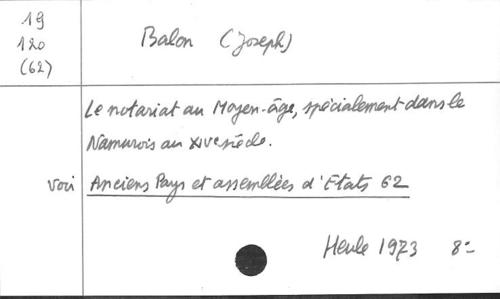 19
120
(62)
Balon (Joseph)
Le notariat au Moyen-âge, spécialement dans le
Namurois au XIVe siècle.
voir Anciens Pays et assemblées d'Etats 62
Heule 1973 8°